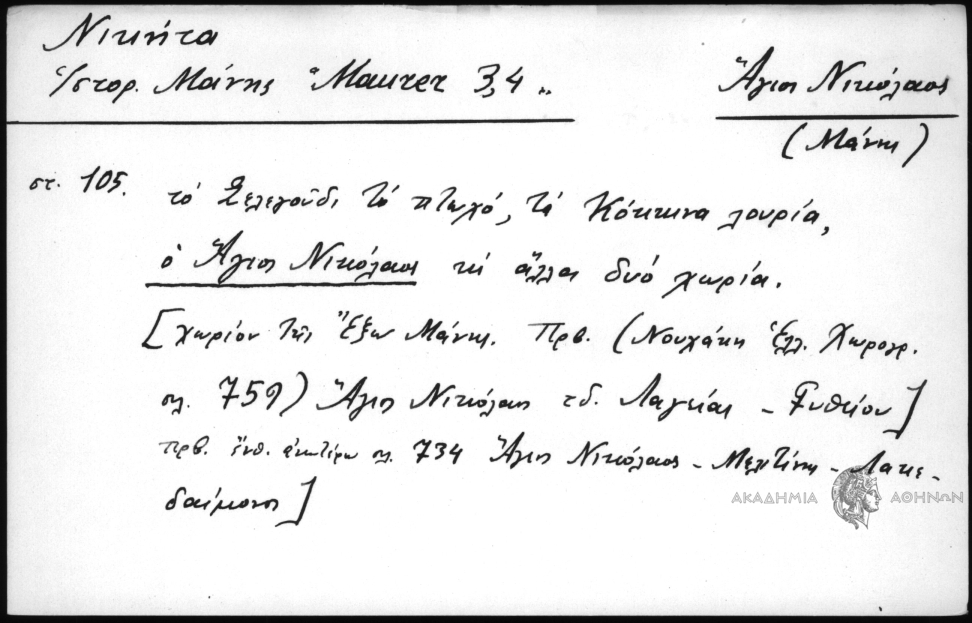 Νικήτα
Ἱστορ. Μάνης "Maurer 3,4"
Ἅγιος Νικόλαος
(Μάνης)
στ. 105. τό Σελεγοῦδι τό πτωχό, τά Κόκκινα λουρία,
ὁ Ἅγιος Νικόλαος κι ἄλλα δυό χωρία.
[χωρίον τῆς Ἔξω Μάνης. Πρβ. (Νουχάκη Ἑλλ. Χωρογρ.
σλ. 759) Ἅγιος Νικόλαος τ.δ. Λαγείας - Γυθείου]
πρβ. ἔνθ. ἀνωτέρω σλ. 734 Ἅγιος Νικόλαος - Μελιτίνης - Λακε-
δαίμονος]
ΑΚΑΔΗΜΙΑ ΑΘΗΝΩΝ